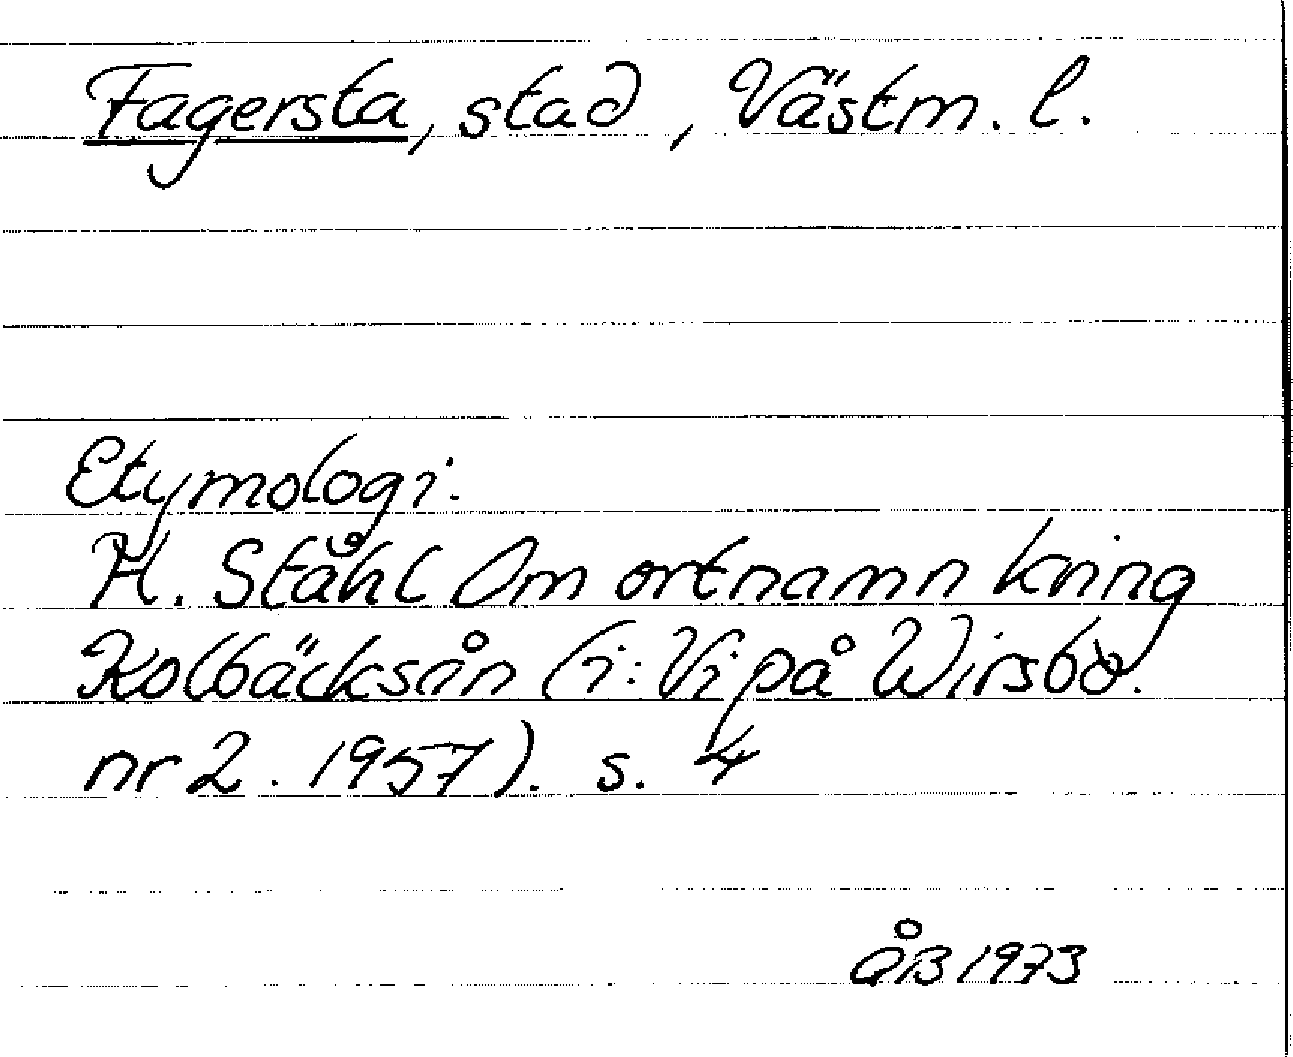 Fagersta, stad, Västm. l.
Etymologi.
H. Ståhl Om ortnamn kring
Kolbäcksån (i: Vi på Wirsbo.
nr 2. 1957). s. 4
ÅB 1973